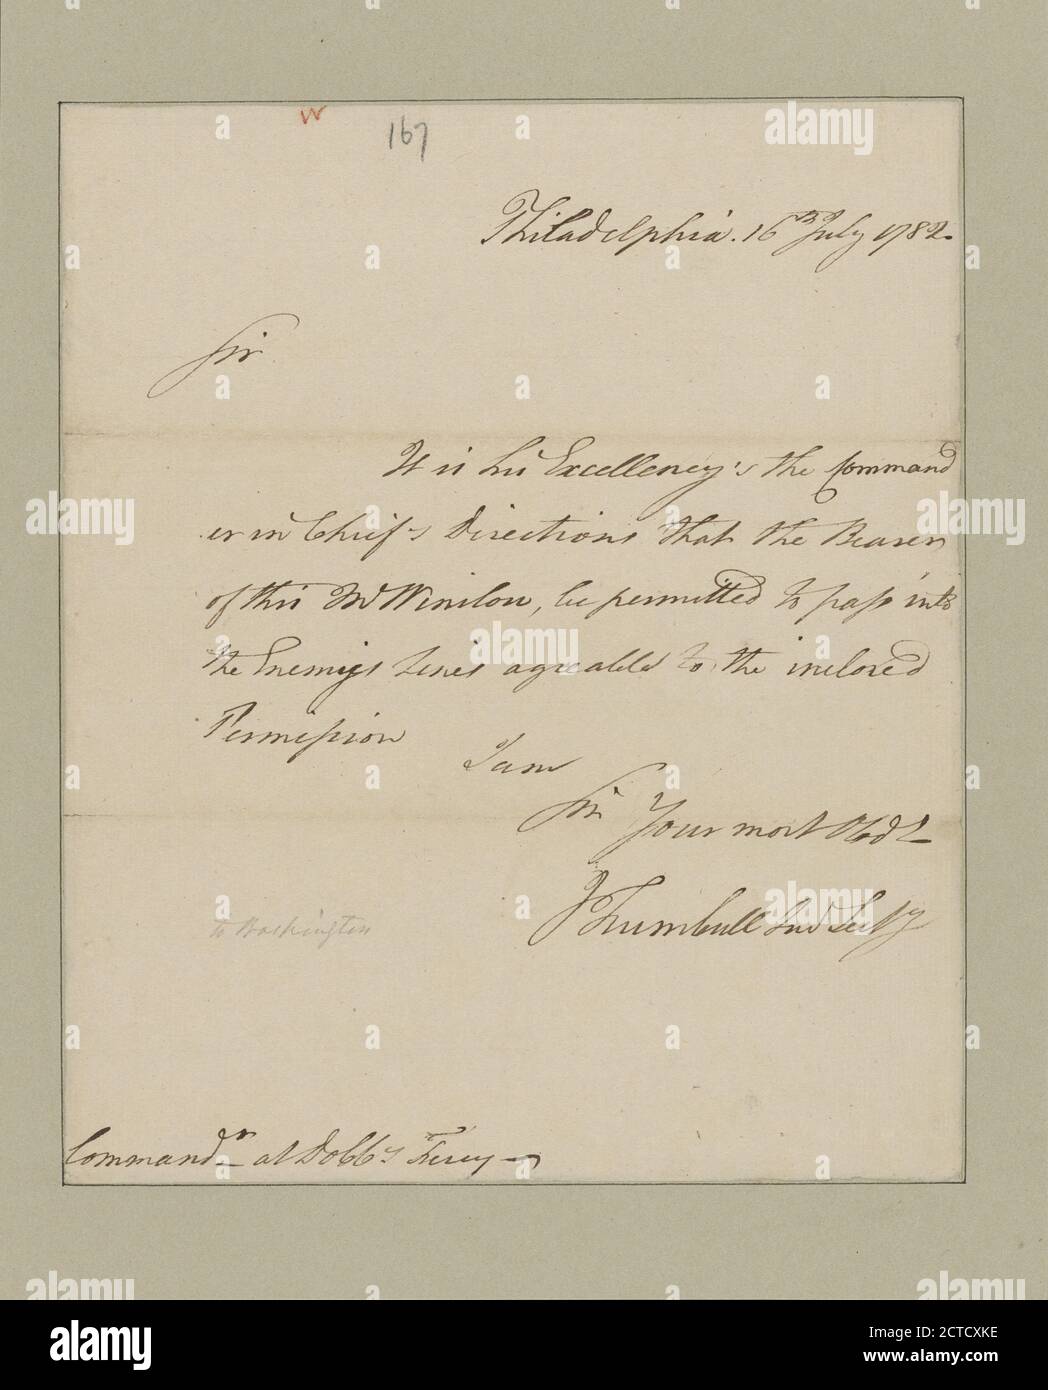 W
167
Philadelphia. 16th July 1782.
Sir
It is his Excellency's the Command
er in Chief's Directions that the Bearer
of this Mr Winslow, be permitted to pass into
the Enemys Lines agreable to the inclosed
Permission
I am
Sir Your most Obdt
J Trumbull Secty
to Washington
Commandr at Dobb's Ferry
alamy
Image ID: 2CTCXKE
www.alamy.com